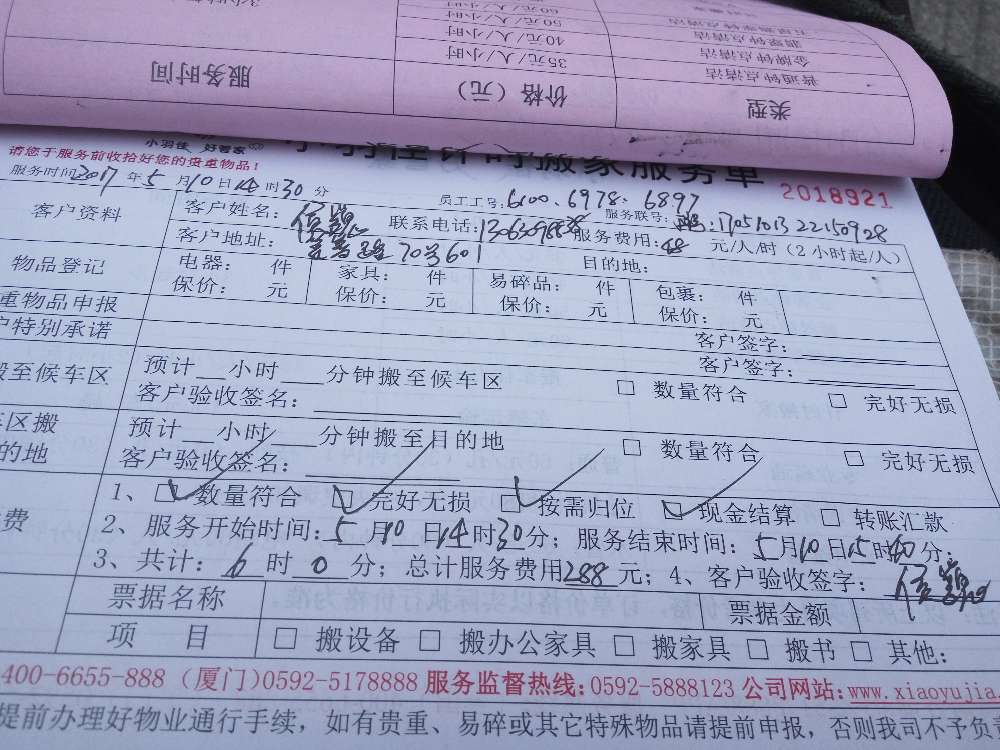 3小时
60元/人/小时
50元/人/小时
翡翠钟点清洁
40元/人/小时
金牌钟点清洁
35元/人/小时
普通钟点清洁
服务时间 价格(元) 类型
小羽佳 好管家
时搬家服务单
请您于服务前收拾好您的贵重物品!
2018921
服务时间2017年5月10日14时30分 员工工号:6100、6978、6897 服务联号: 1705101322150928
客户资料 客户姓名: 联系电话: 服务费用:48元/人/时(2小时起/人)
客户地址: 70号601 目的地:
物品登记 电器: 件 家具: 件 易碎品: 件 包裹: 件
保价: 元 保价: 元 保价: 元 保价: 元
重物品申报 客户签字:
户特别承诺 客户签字:
搬至候车区 预计 小时 分钟搬至候车区 □ 数量符合 □ 完好无损
客户验收签名:
车区搬 预计 小时 分钟搬至目的地 □ 数量符合 □ 完好无损
的地 客户验收签名:
1、☑ 数量符合 ☑ 完好无损 ☑ 按需归位 ☑ 现金结算 □ 转账汇款
费 2、服务开始时间:5月10日14时30分;服务结束时间:5月10日15时40分;
3、共计:6时0分;总计服务费用288元;4、客户验收签字:
票据名称 票据金额
项 目 □ 搬设备 □ 搬办公家具 □ 搬家具 □ 搬书 □ 其他:
400-6655-888 (厦门)0592-5178888 服务监督热线:0592-5888123 公司网站:www.xiaoyujia.
提前办理好物业通行手续,如有贵重、易碎或其它特殊物品请提前申报,否则我司不予负责